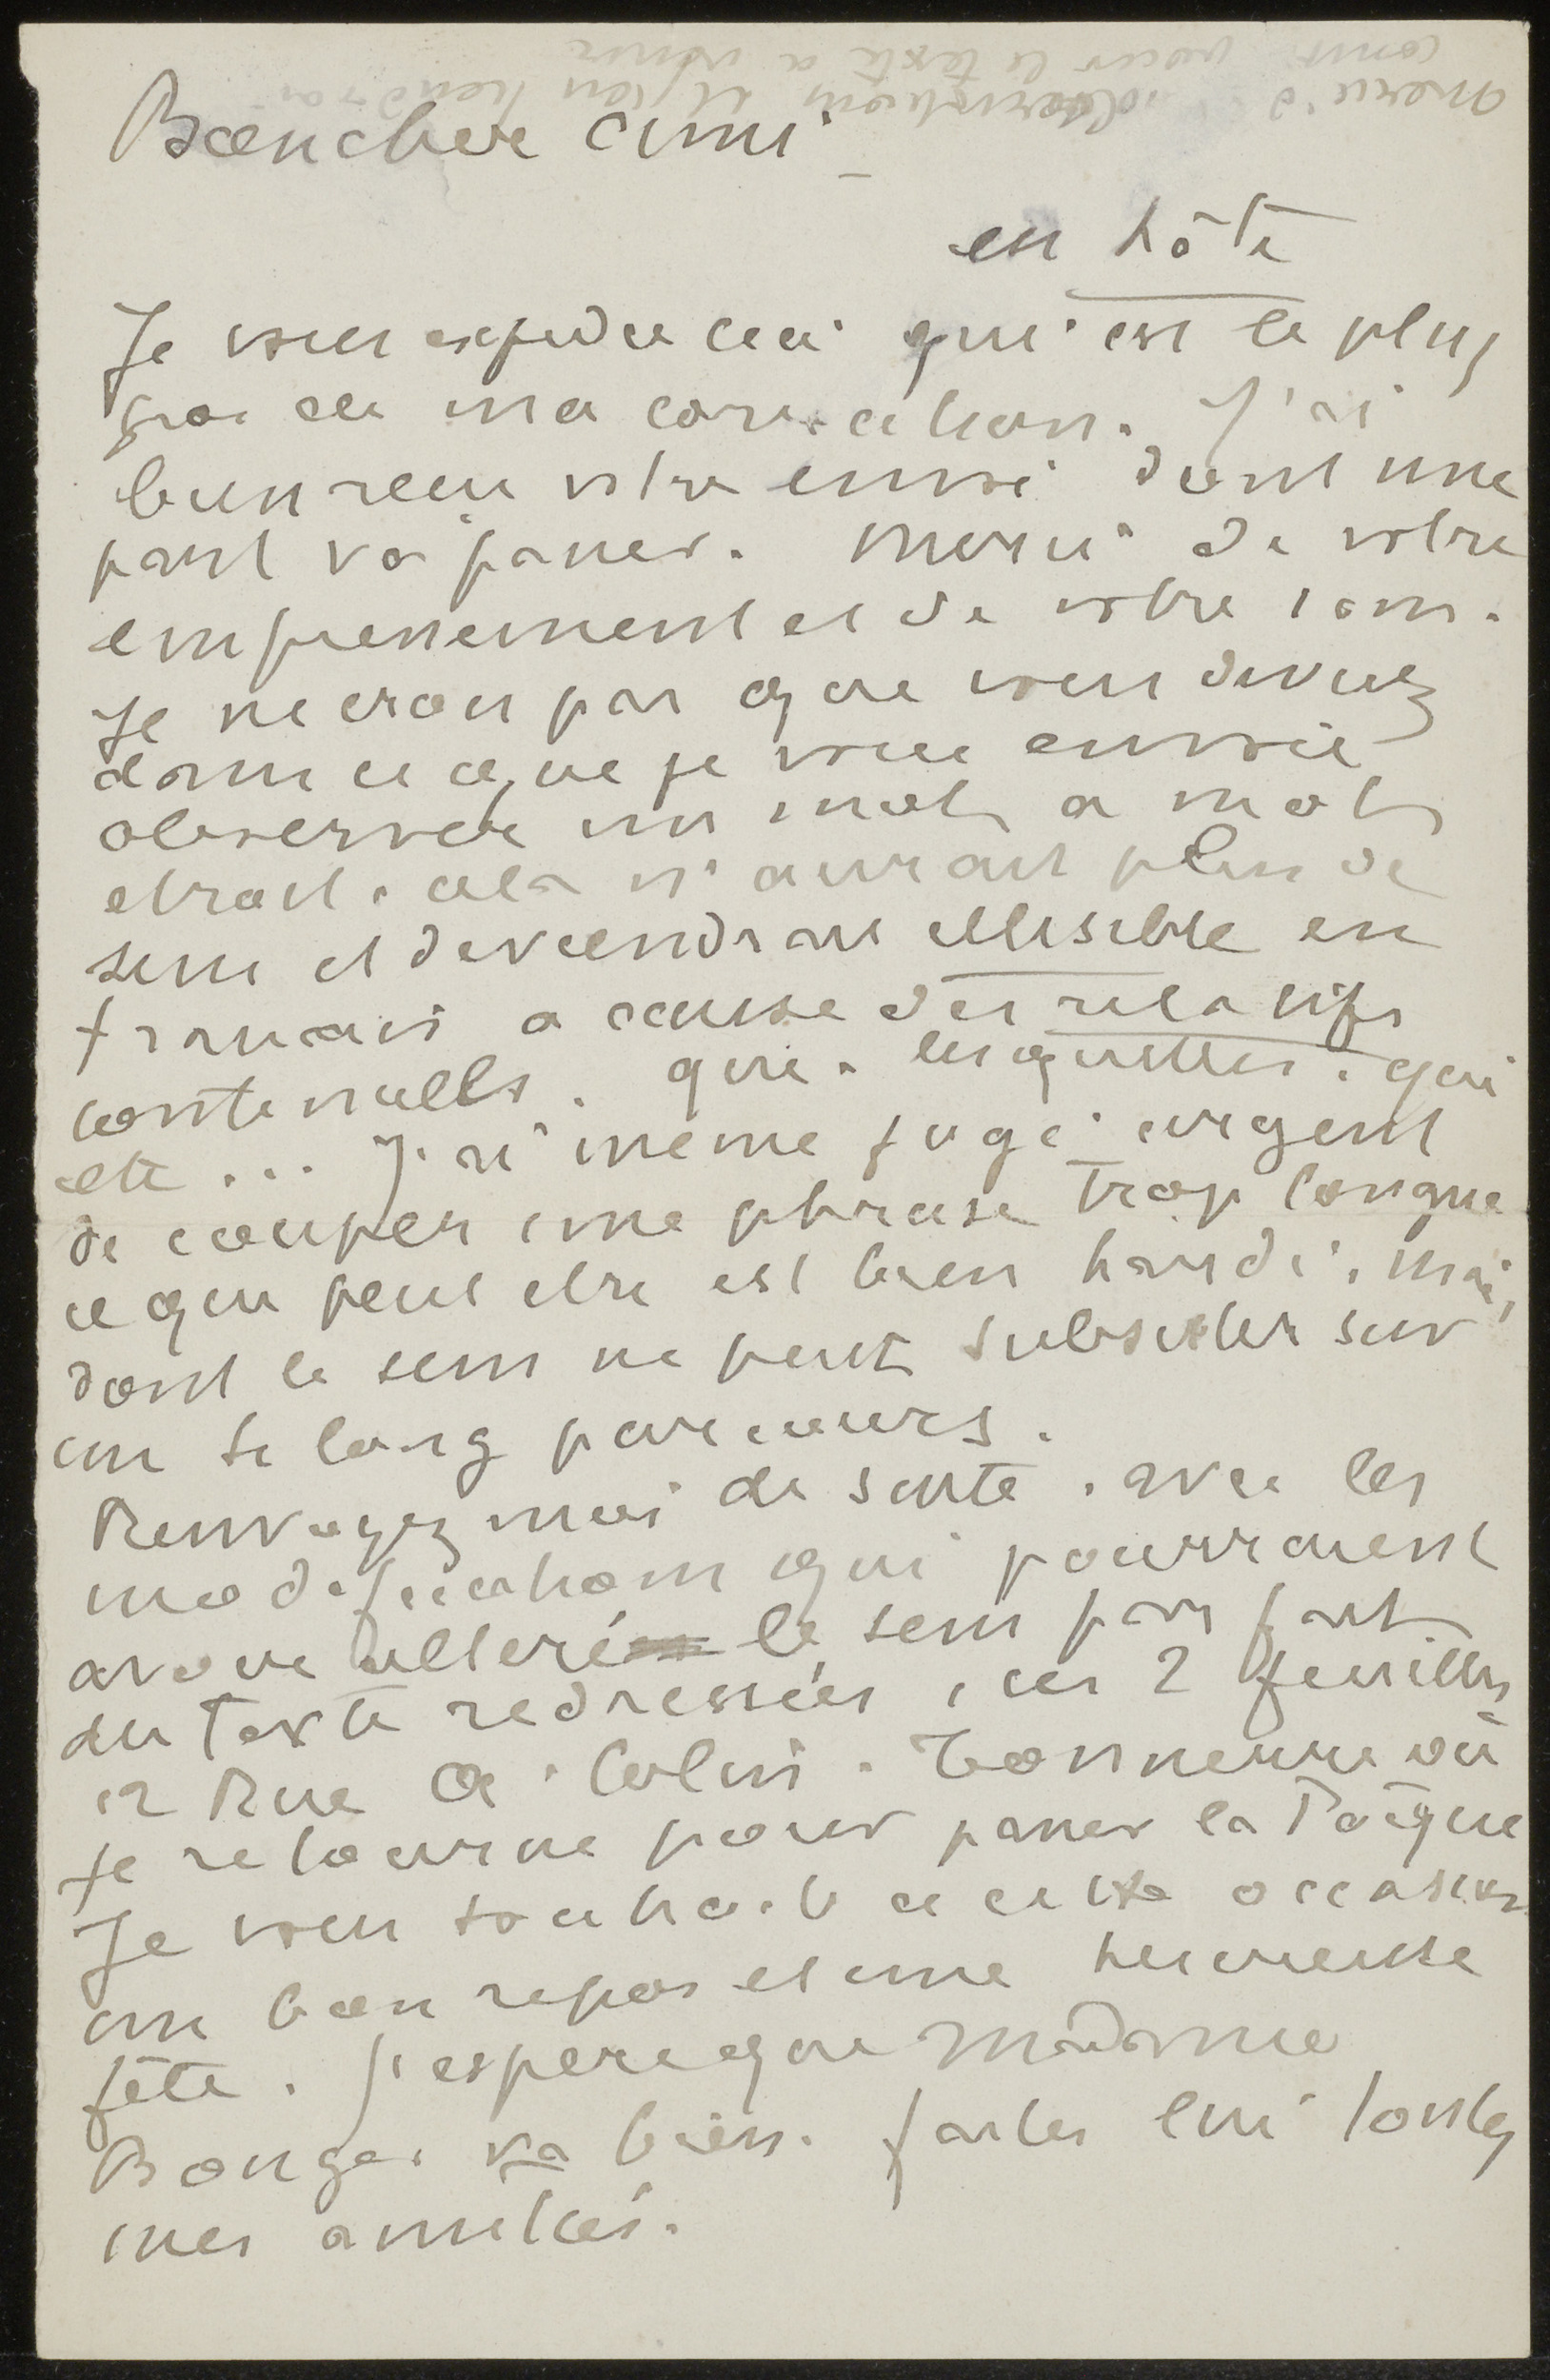 Bon cher ami
en hâte
Je vous expedie ceci qui est le plus
gros de ma correction. J'ai
bien recu votre envoi dont une
part va passer. Merci de votre
empressement et de votre soin.
Je ne crois pas que vous deviez
dans ce que je vous envoie
observer un mot a mot
etroit. cela n'aurait plus de
sens et deviendrait illisible en
francais a cause des relatifs
continuels. que. lesquelles. qui
etc... J'ai meme jugé urgent
de couper une phrase trop longue
ce qui peut etre est bien hardi, mais
dont le sens ne peut subsister sur
un si long parcours.
Renvoyez moi de suite. avec les
modifications qui pourraient
avoir alteré le sens par fait
du texte redressées, ces 2 feuilles
12 Rue A. Colin. Tonnerre où
je retourne pour passer la Pâque
Je vous souhaite a cette occasion
un bon repos et une heureuse
fête. J'espere que Madame
Bonger va bien. faites lui toutes
mes amitiés.
Merci d'
le texte a venir